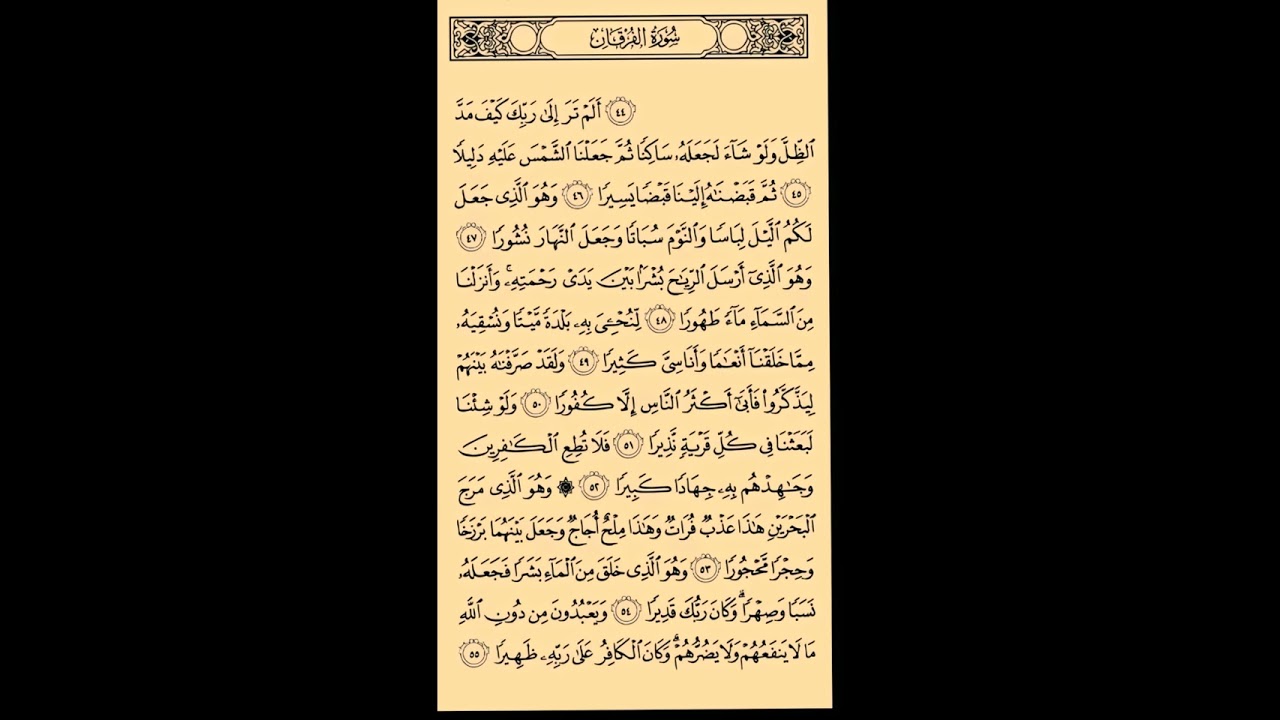 سُورَةُ الفُرْقَانِ
٤٤ أَلَمْ تَرَ إِلَىٰ رَبِّكَ كَيْفَ مَدَّ
ٱلظِّلَّ وَلَوْ شَآءَ لَجَعَلَهُۥ سَاكِنًا ثُمَّ جَعَلْنَا ٱلشَّمْسَ عَلَيْهِ دَلِيلًا
٤٥ ثُمَّ قَبَضْنَٰهُ إِلَيْنَا قَبْضًا يَسِيرًا ٤٦ وَهُوَ ٱلَّذِى جَعَلَ
لَكُمُ ٱلَّيْلَ لِبَاسًا وَٱلنَّوْمَ سُبَاتًا وَجَعَلَ ٱلنَّهَارَ نُشُورًا ٤٧
وَهُوَ ٱلَّذِىٓ أَرْسَلَ ٱلرِّيَٰحَ بُشْرًۢا بَيْنَ يَدَىْ رَحْمَتِهِۦ ۚ وَأَنزَلْنَا
مِنَ ٱلسَّمَآءِ مَآءً طَهُورًا ٤٨ لِّنُحْـِۧىَ بِهِۦ بَلْدَةً مَّيْتًا وَنُسْقِيَهُۥ
مِمَّا خَلَقْنَآ أَنْعَٰمًا وَأَنَاسِىَّ كَثِيرًا ٤٩ وَلَقَدْ صَرَّفْنَٰهُ بَيْنَهُمْ
لِيَذَّكَّرُوا۟ فَأَبَىٰٓ أَكْثَرُ ٱلنَّاسِ إِلَّا كُفُورًا ٥٠ وَلَوْ شِئْنَا
لَبَعَثْنَا فِى كُلِّ قَرْيَةٍ نَّذِيرًا ٥١ فَلَا تُطِعِ ٱلْكَٰفِرِينَ
وَجَٰهِدْهُم بِهِۦ جِهَادًا كَبِيرًا ٥٢ ۞ وَهُوَ ٱلَّذِى مَرَجَ
ٱلْبَحْرَيْنِ هَٰذَا عَذْبٌ فُرَاتٌ وَهَٰذَا مِلْحٌ أُجَاجٌ وَجَعَلَ بَيْنَهُمَا بَرْزَخًا
وَحِجْرًا مَّحْجُورًا ٥٣ وَهُوَ ٱلَّذِى خَلَقَ مِنَ ٱلْمَآءِ بَشَرًا فَجَعَلَهُۥ
نَسَبًا وَصِهْرًا ۗ وَكَانَ رَبُّكَ قَدِيرًا ٥٤ وَيَعْبُدُونَ مِن دُونِ ٱللَّهِ
مَا لَا يَنفَعُهُمْ وَلَا يَضُرُّهُمْ ۗ وَكَانَ ٱلْكَافِرُ عَلَىٰ رَبِّهِۦ ظَهِيرًا ٥٥